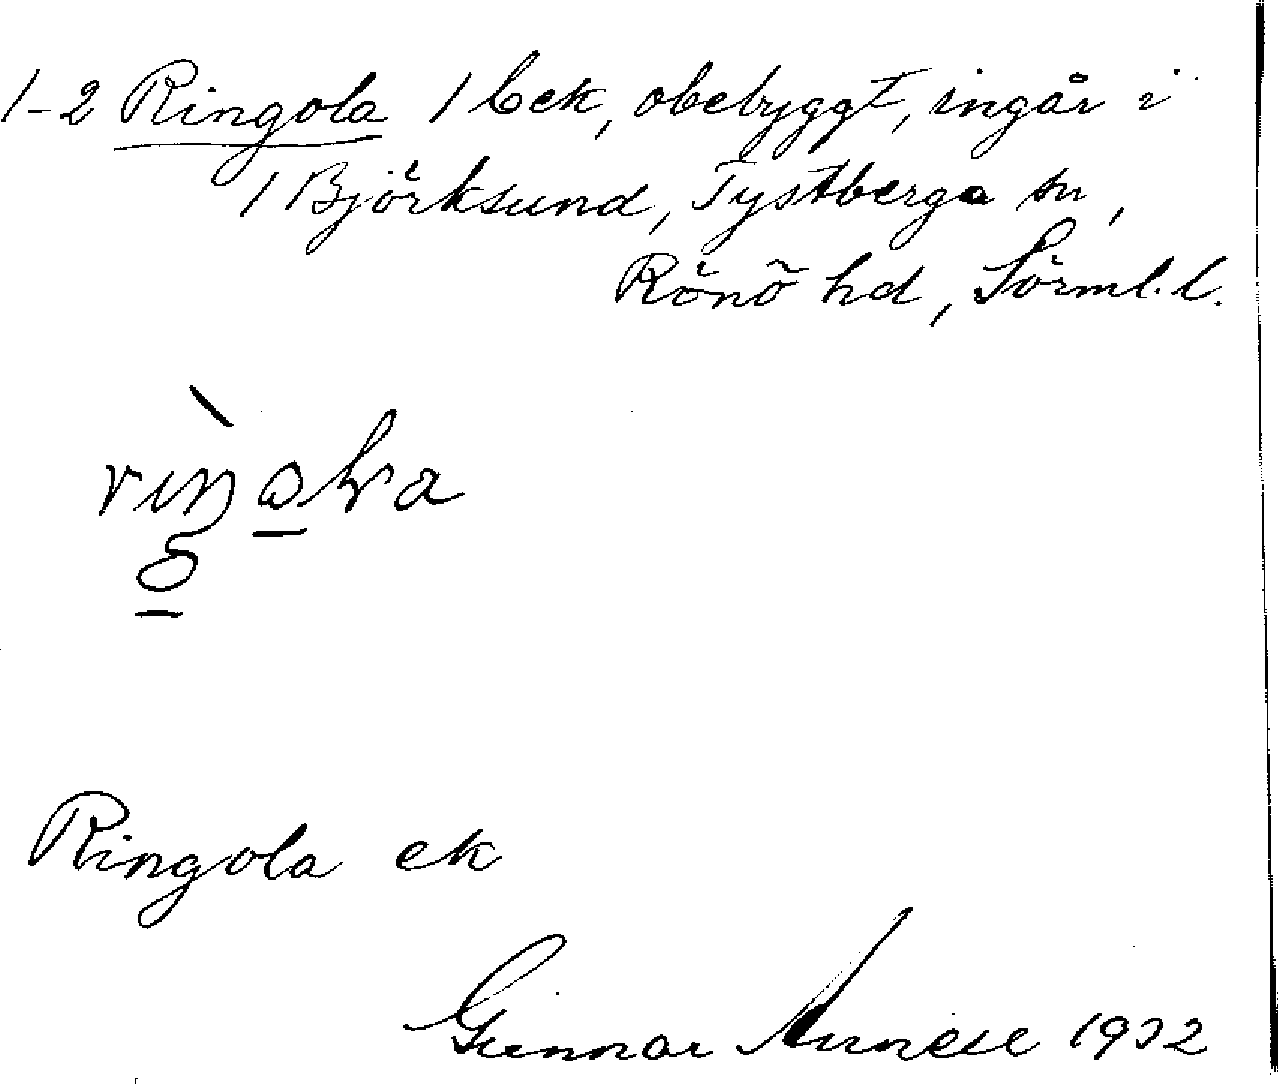 1-2 Ringola / bek, obebyggt, ingår i
1 Björksund, Tystberga sn,
Rönö hd, Sörml. l.
Ringola ek
Gunnar 1932